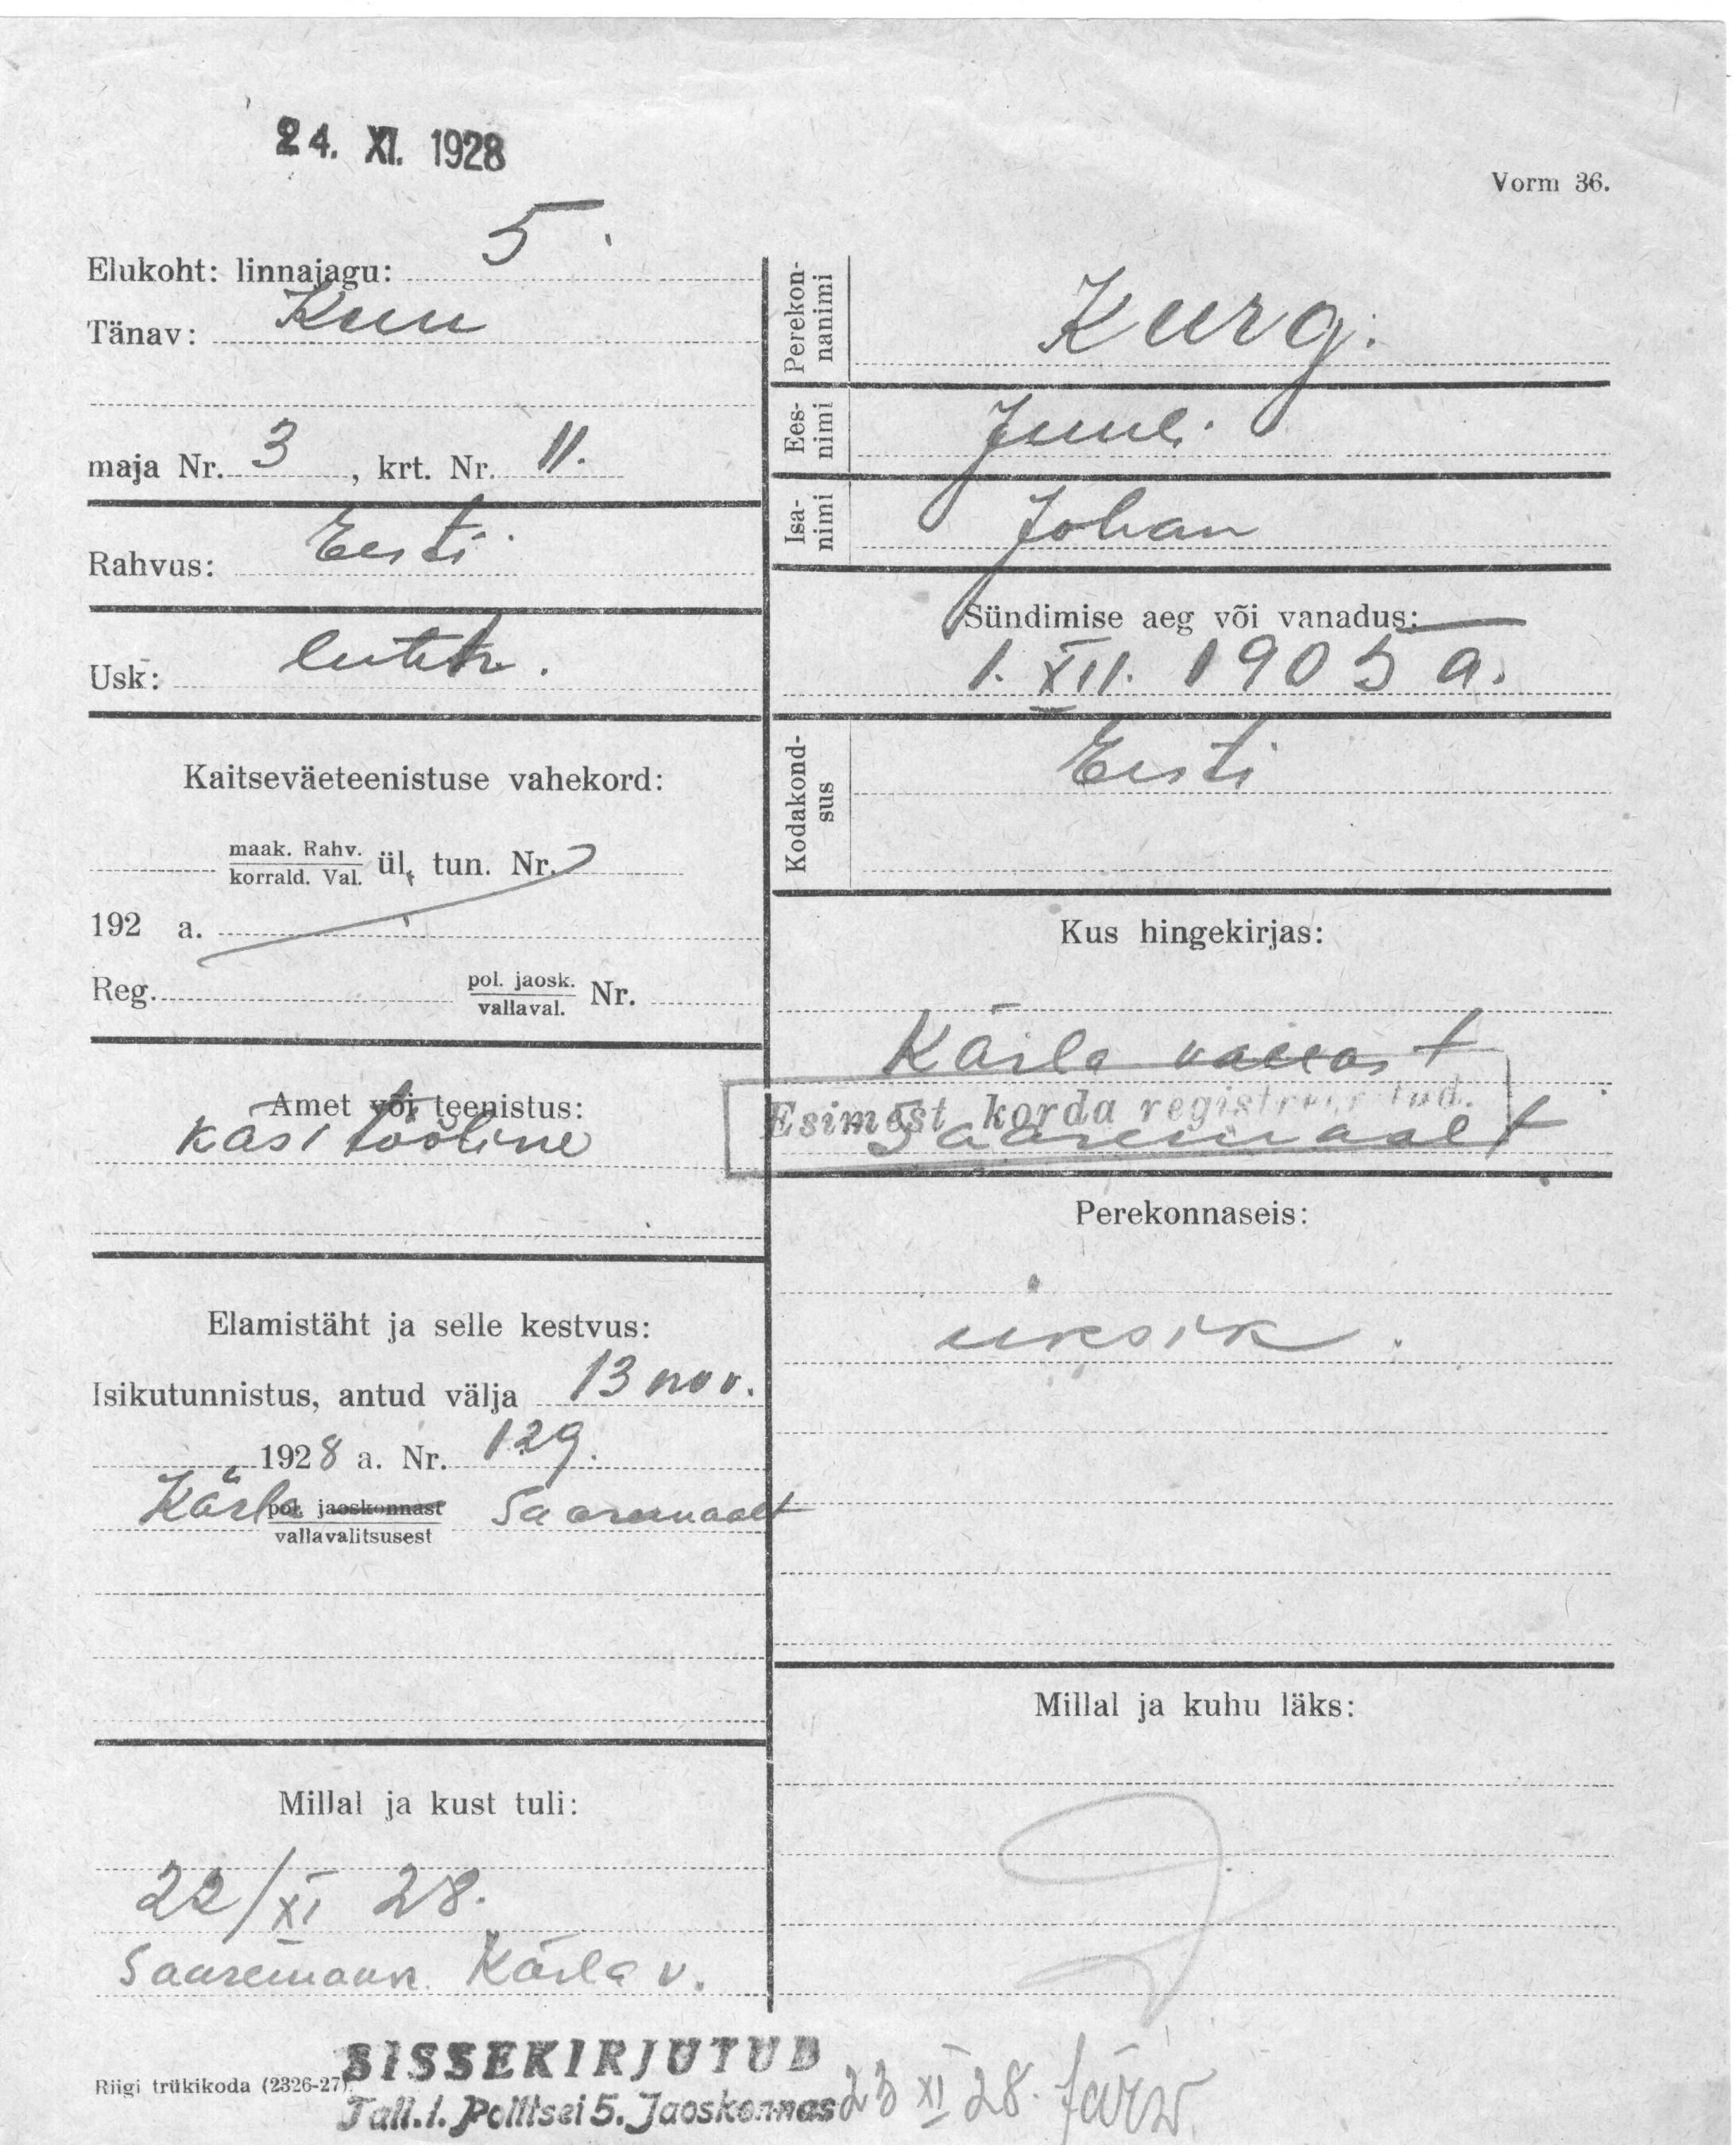 24. XI. 1928
Vorm 36.
Elukoht: linnajagu: 5.
Tänav: Kuu
maja Nr. 3, krt. Nr. 11.
Rahvus: Eesti
Usk: luth.
Kaitseväeteenistuse vahekord:
maak. Rahv.
korrald. Val. ül. tun. Nr.
192 a.
Reg. pol. jaosk.
vallaval. Nr.
Amet või teenistus:
käsitööline
Elamistäht ja selle kestvus:
Isikutunnistus, antud välja 13 nov.
1928 a. Nr. 129.
Kärla pol. jaoskonnast Saaremaalt
vallavalitsusest
Millal ja kust tuli:
22/XI 28.
Saaremaa Kärla v.
Perekon-
nanimi Kurg.
Ees-
nimi Juuli
Isa-
nimi Johan
Sündimise aeg või vanadus:
1. XII. 1905 a.
Kodakond-
sus Eesti
Kus hingekirjas:
Kärla vallast
Esimest korda registreeritud.
Saaremaalt
Perekonnaseis:
üksik.
Millal ja kuhu läks:
Riigi trükikoda (2326-27).
SISSEKIRJUTUD
Tall.l. Politsei 5. Jaoskonnas 23 XI 28. Järw